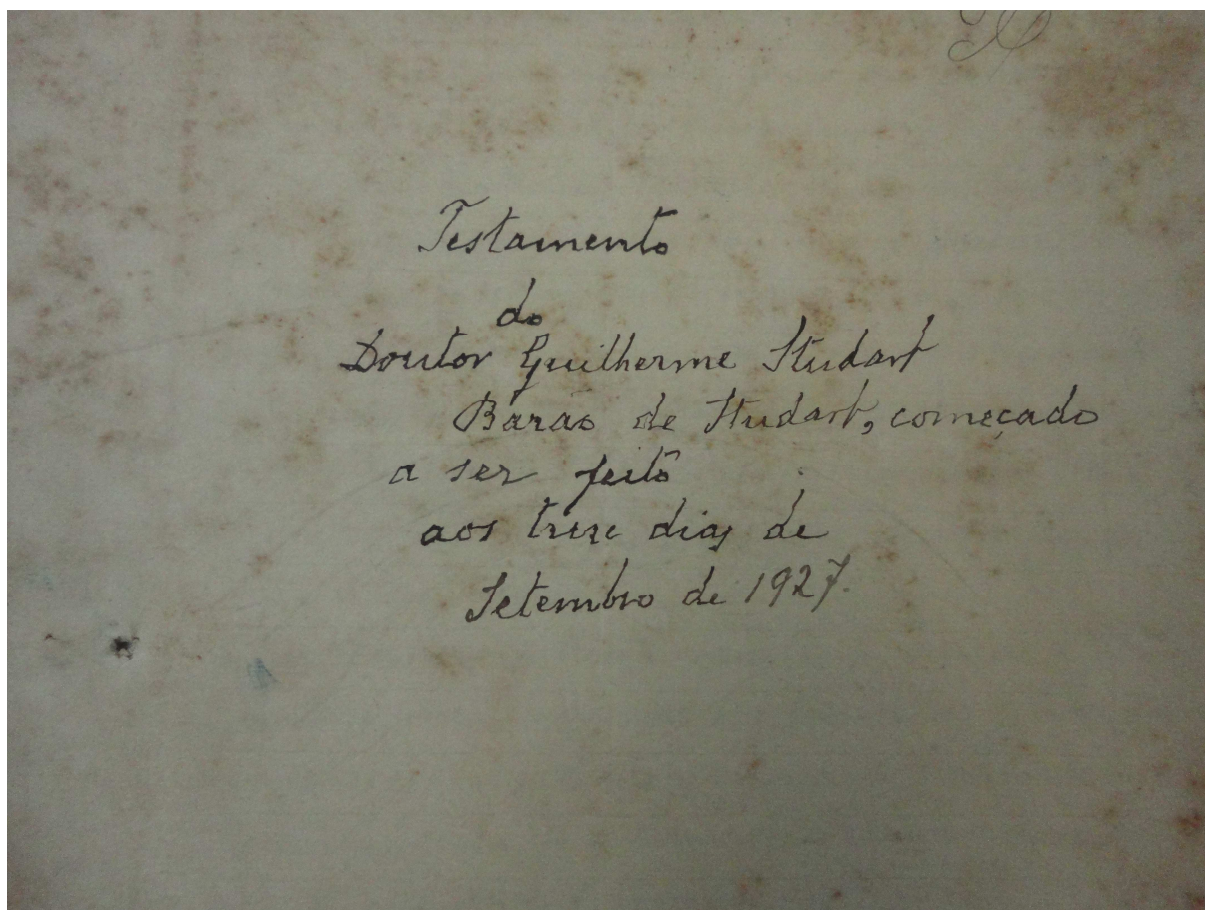 Testamento
do
Doutor Guilherme Studart
Barão de Studart, começado
a ser feito
aos treze dias de
Setembro de 1927.